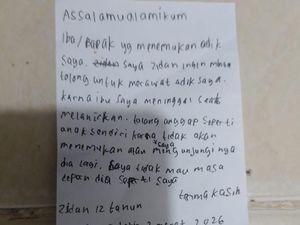 Assalamualamikum
Iba/Bapak yg menemukan adik
saya. saya zidan ingin minta
tolong untuk merawat adik saya.
karna ibu saya meninggal saat
melahirkan. tolong anggap seperti
anak sendiri karna saya tidak akan
menemukan atau mengunjungi nya
dia lagi. saya tidak mau masa
depan dia seperti saya
terima kasih
Zidan 12 tahun
2026